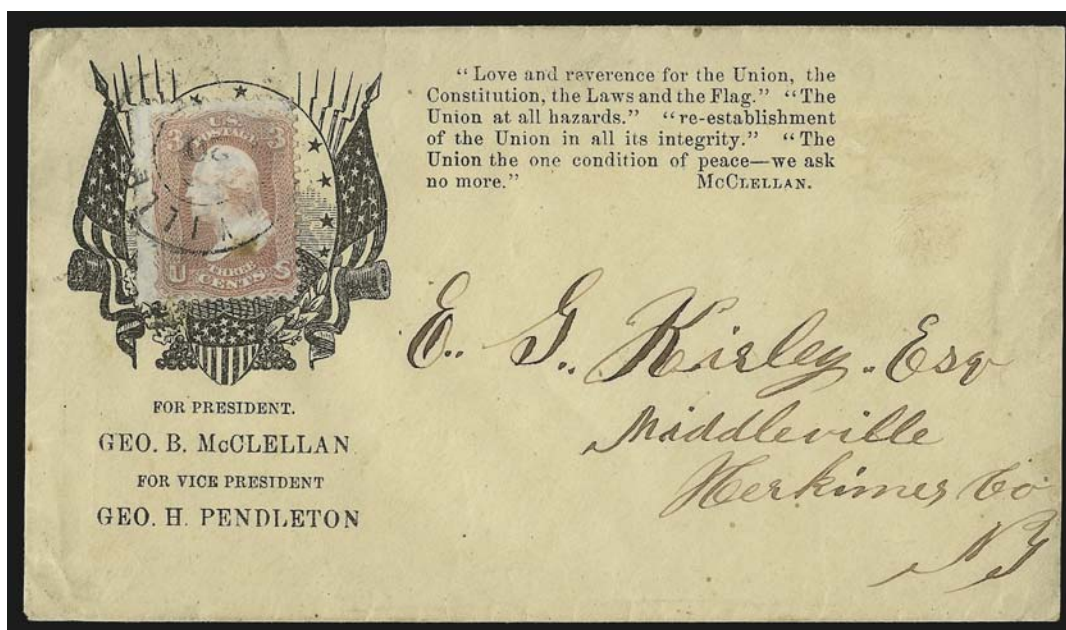 “ Love and reverence for the Union, the
Constitution, the Laws and the Flag.” “The
Union at all hazards.” “re-establishment
of the Union in all its integrity.” “The
Union the one condition of peace—we ask
no more.” McClellan.
3 U.S. 3
POSTAGE
U THREE S
CENTS
FOR PRESIDENT.
GEO. B. McCLELLAN
FOR VICE PRESIDENT
GEO. H. PENDLETON
E. G. Kisley. Esq
Middleville
Herkimer Co
NY